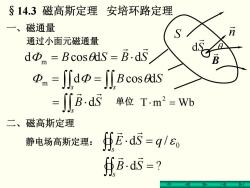 §14.3 磁高斯定理 安培环路定理
一、磁通量
通过小面元磁通量
dΦₘ = B cosθdS = B⃗·dS⃗
Φₘ = ∬ₛ dΦ = ∬ₛ B cosθdS
= ∬ₛ B⃗·dS⃗ 单位 T·m² = Wb
S
n⃗
dS⃗
θ
B⃗
二、磁高斯定理
静电场高斯定理: ∯ₛ E⃗·dS⃗ = q / ε₀
∯ₛ B⃗·dS⃗ = ?